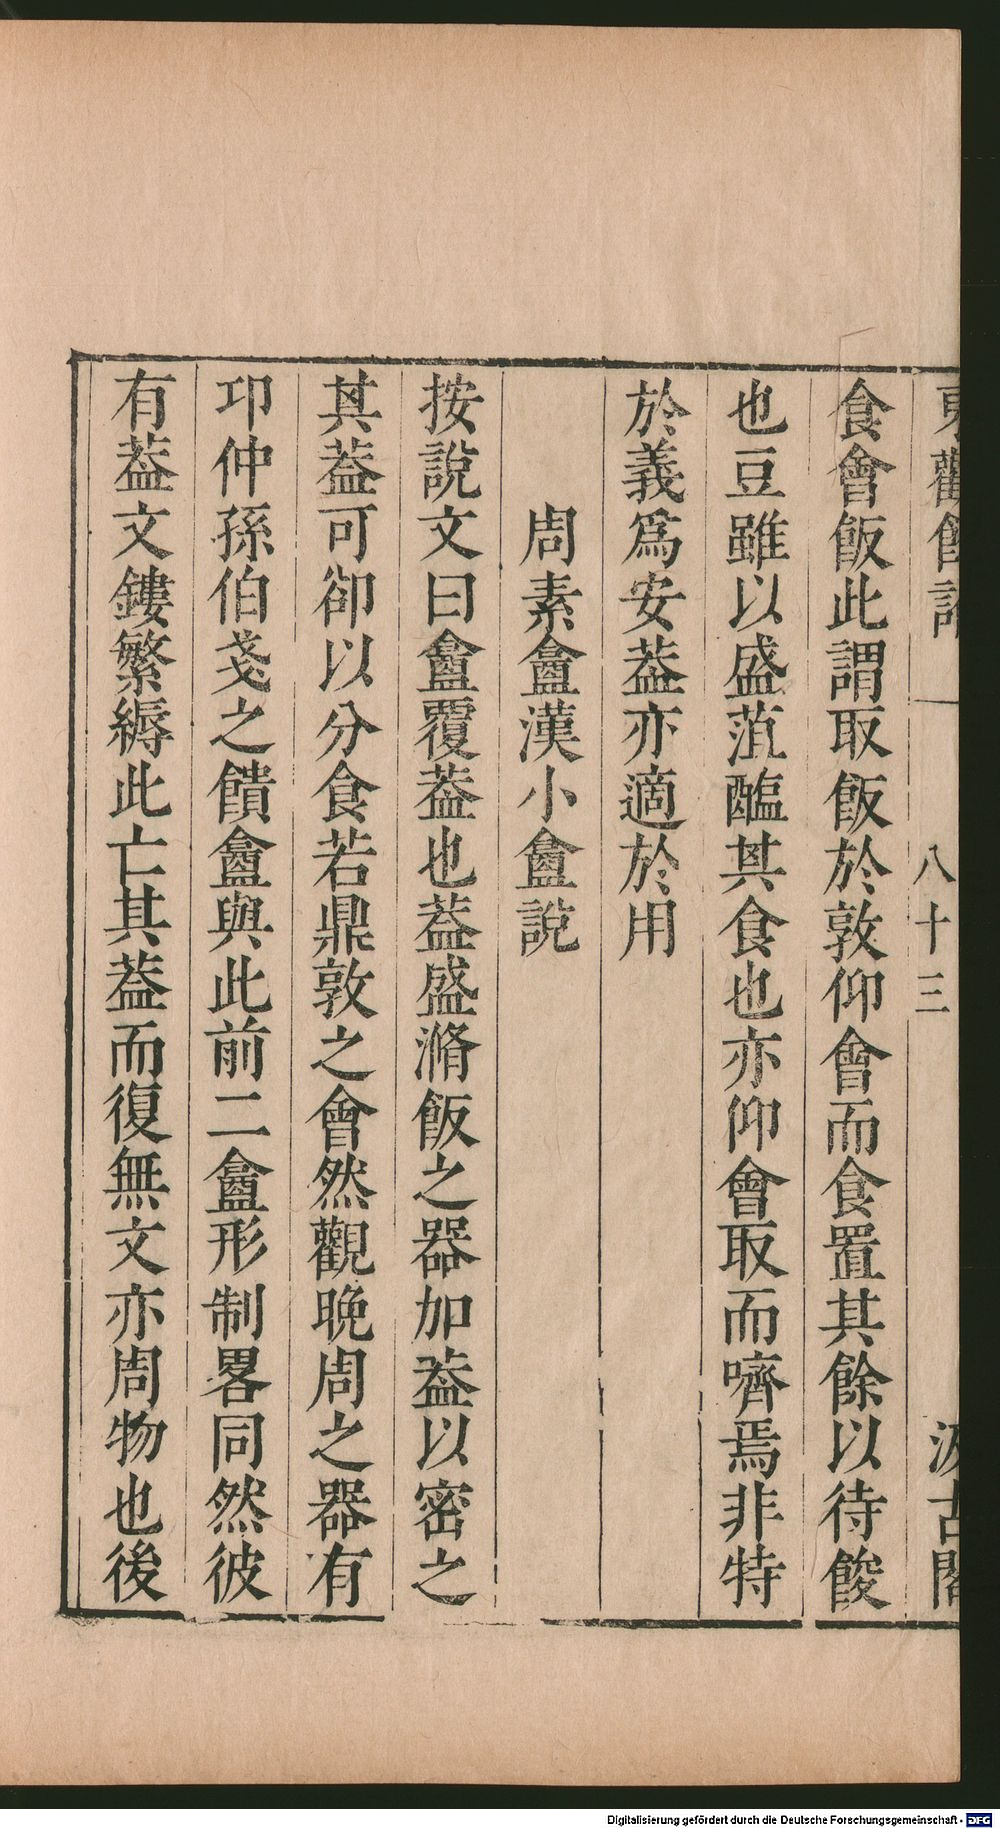 東觀餘論 八十三 汲古閣
食會飯此謂取飯於敦仰會而食置其餘以待餕
也豆雖以盛菹醢其食也亦仰會取而嚌焉非特
於義爲安葢亦適於用
周素盦漢小盦說
按說文曰盦覆葢也葢盛滫飯之器加葢以密之
其葢可卻以分食若鼎敦之會然觀晚周之器有
卭仲孫伯戔之饙盦與此前二盦形制畧同然彼
有葢文鏤繁縟此亡其葢而復無文亦周物也後
Digitalisierung gefördert durch die Deutsche Forschungsgemeinschaft - DFG